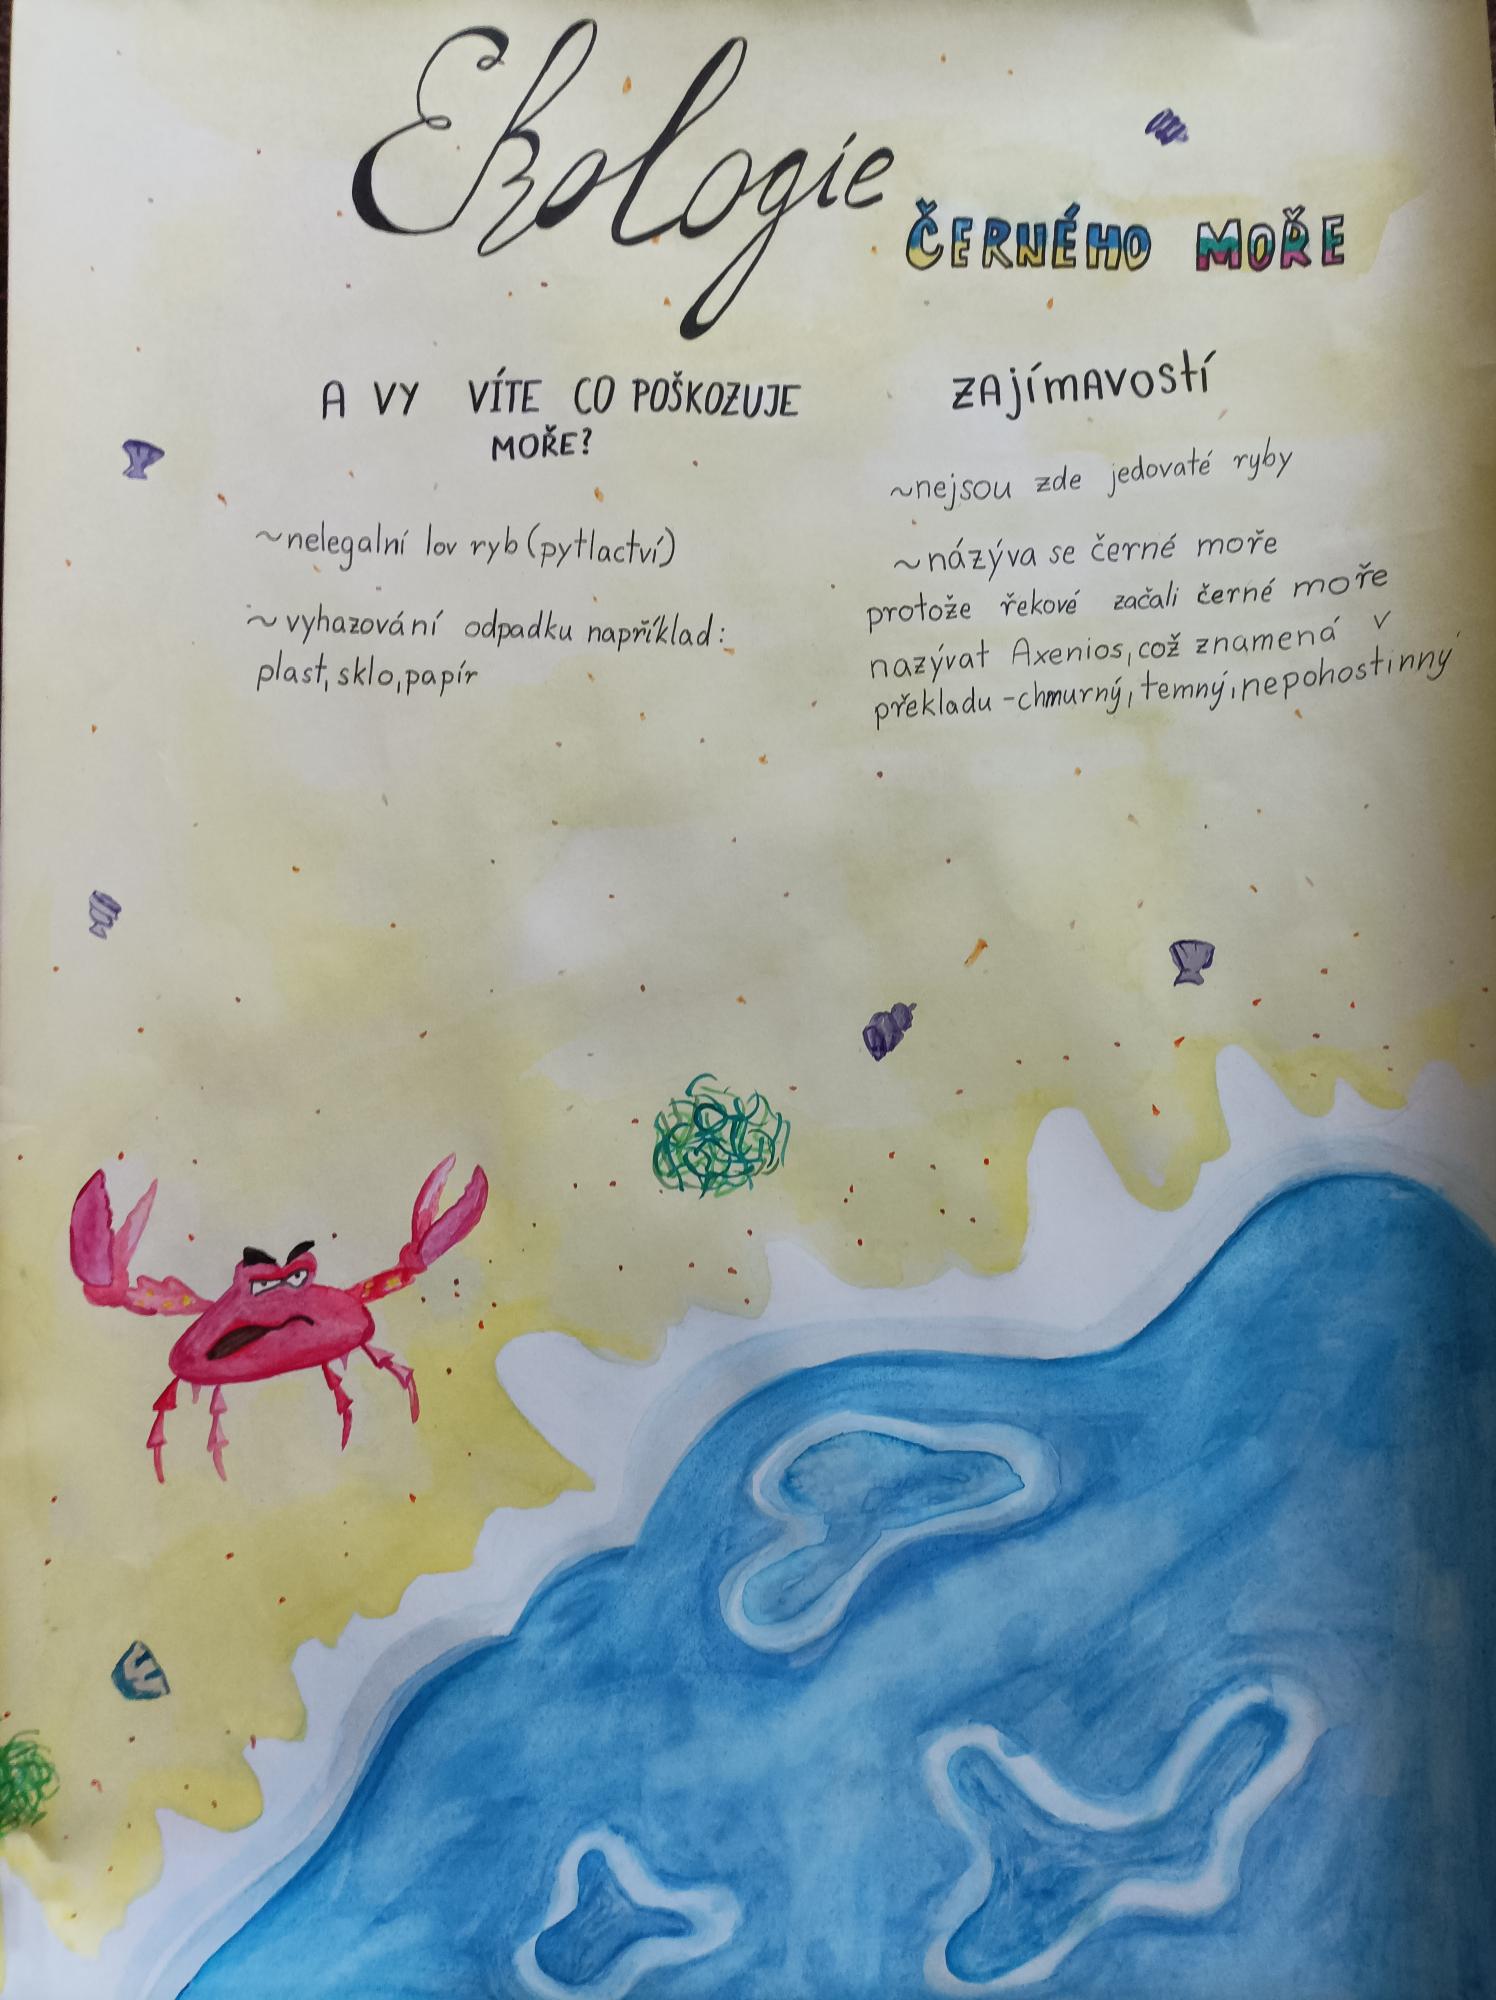 Ekologie
ČERNÉHO MOŘE
A VY VÍTE CO POŠKOZUJE
MOŘE?
~nelegalní lov ryb (pytlactví)
~vyhazování odpadku například:
plast, sklo, papír
ZAjímAVostí
~nejsou zde jedovaté ryby
~názýva se černé moře
protože řekové začali černé moře
nazývat Axenios, což znamená v
překladu -chmurný, temný, nepohostinný